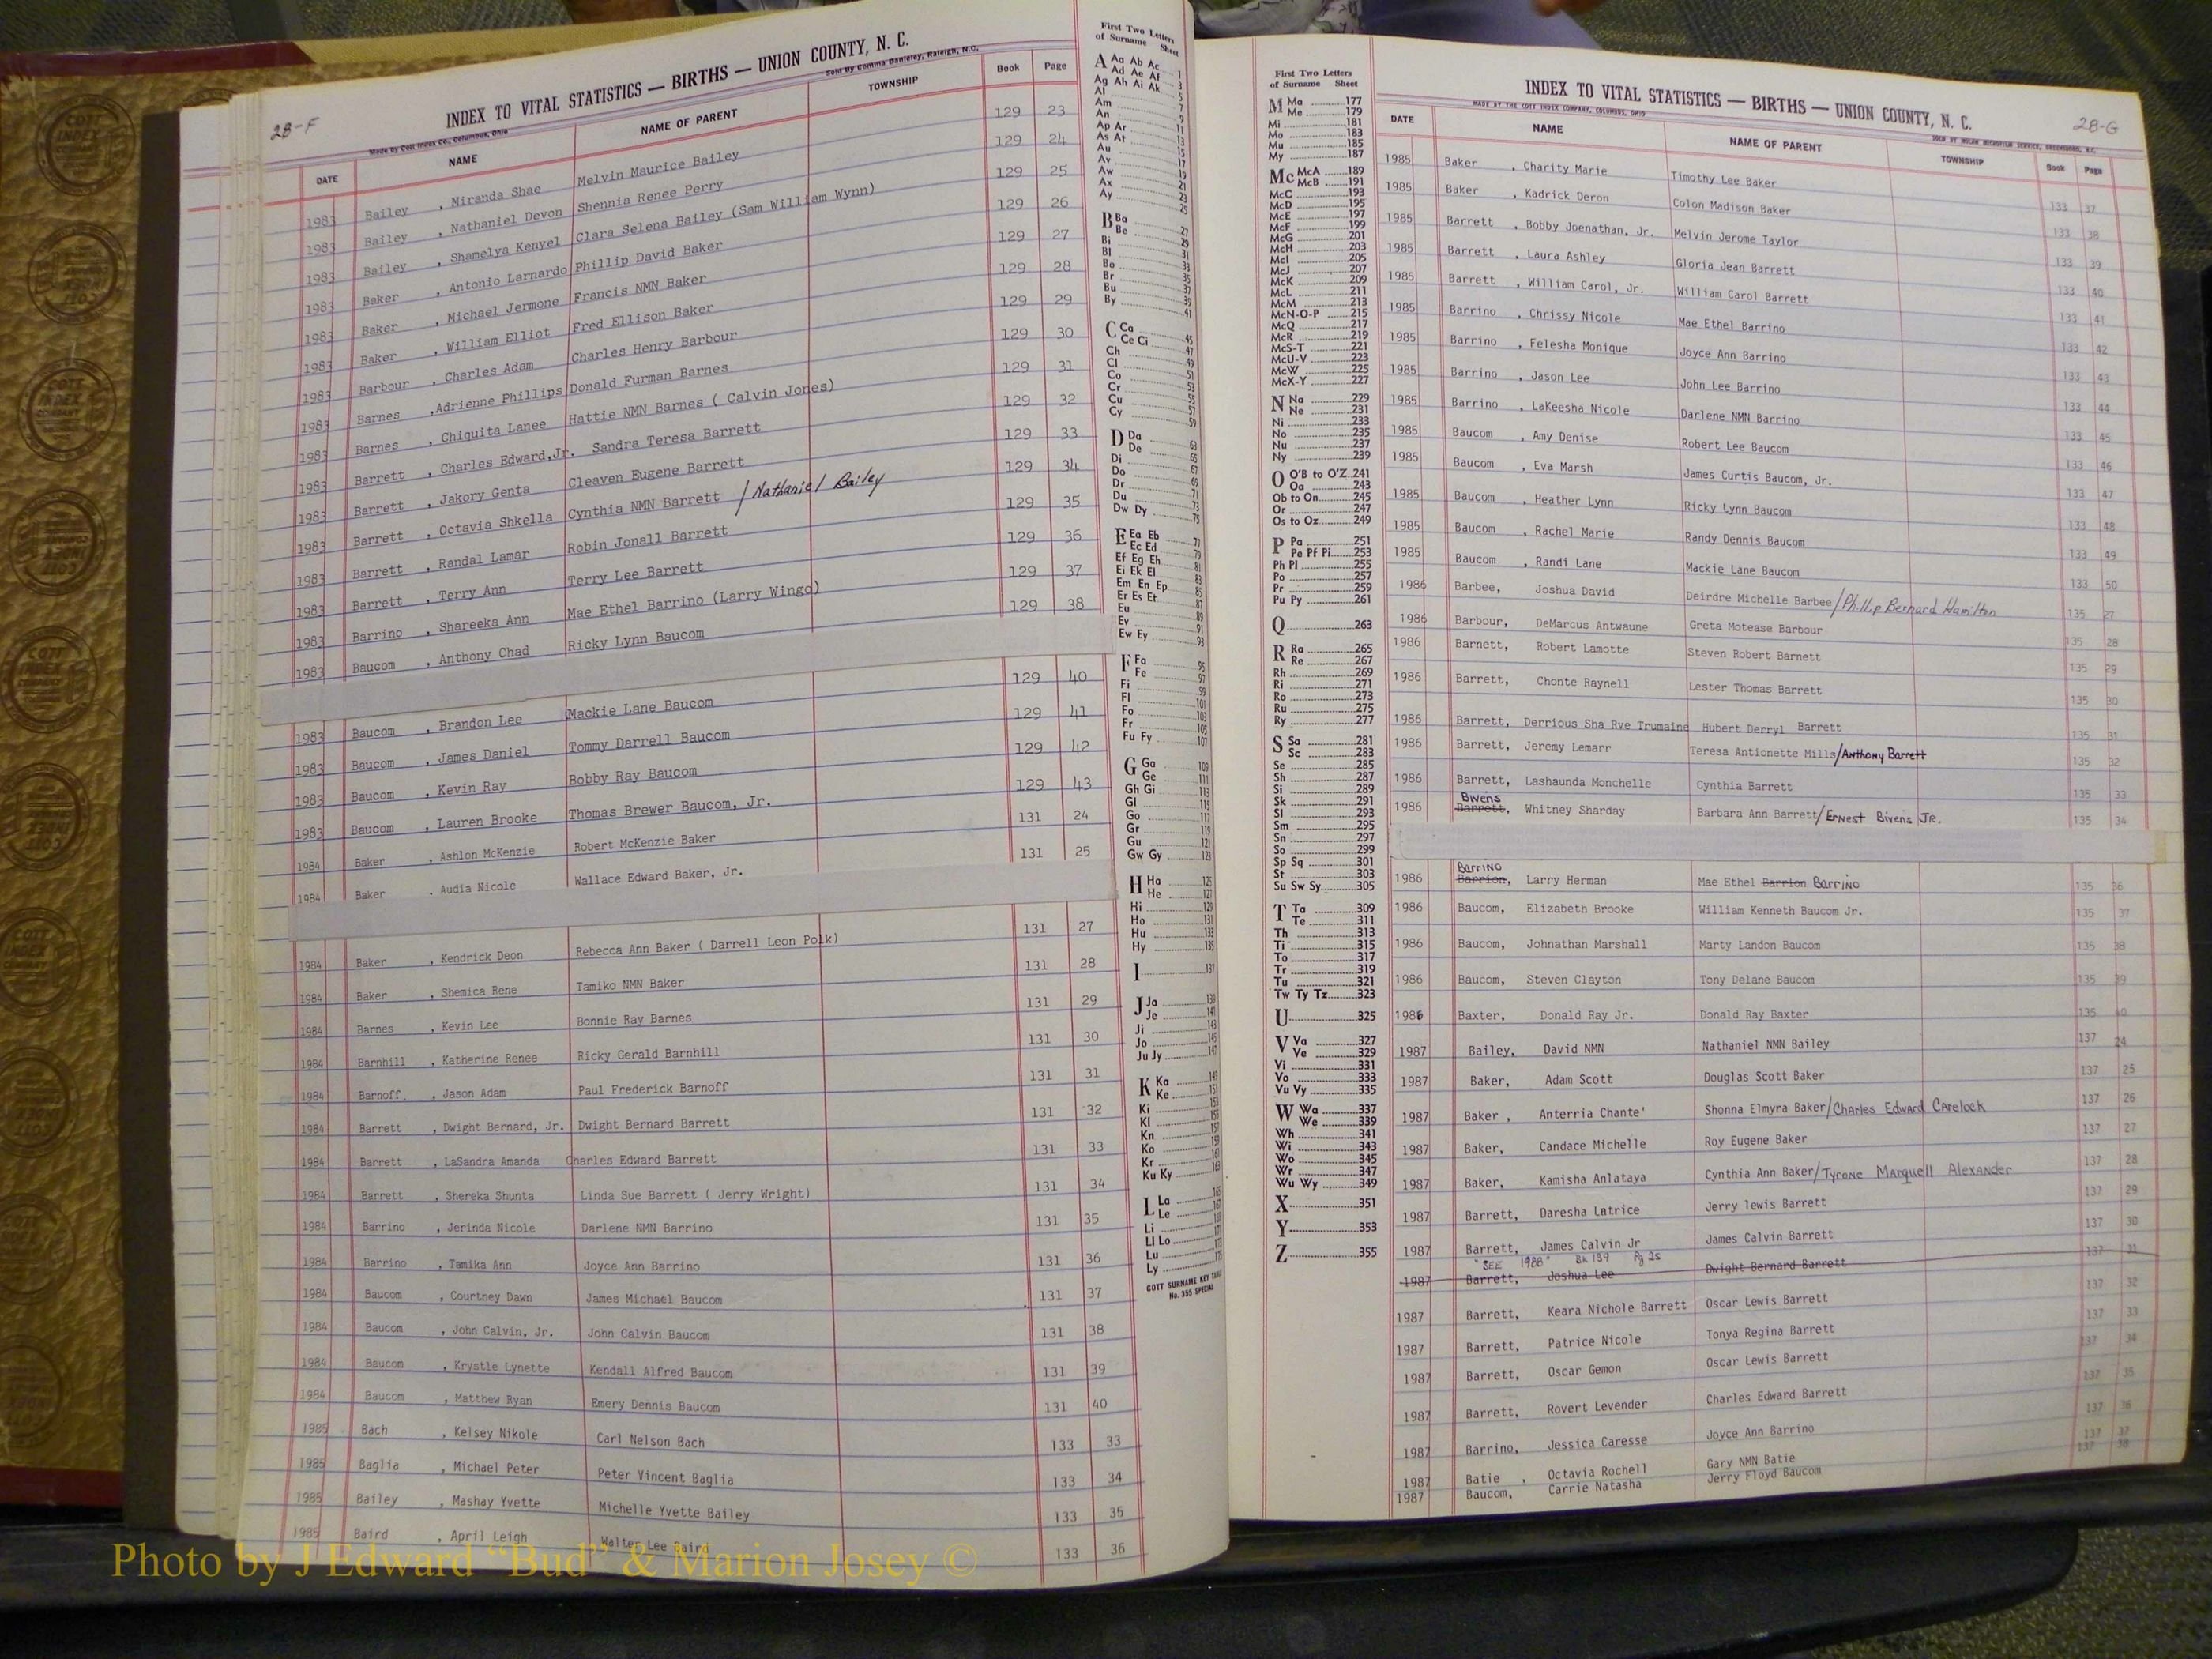 28-F
INDEX TO VITAL STATISTICS — BIRTHS — UNION COUNTY, N. C.
Made by Cott Index Co., Columbus, Ohio
Sold By Comma Danieley, Raleigh, N.C.
DATE NAME NAME OF PARENT TOWNSHIP Book Page
1983 Bailey , Miranda Shae Melvin Maurice Bailey 129 23
1983 Bailey , Nathaniel Devon Shennia Renee Perry 129 24
1983 Bailey , Shamelya Kenyel Clara Selena Bailey (Sam William Wynn) 129 25
1983 Baker , Antonio Larnardo Phillip David Baker 129 26
1983 Baker , Michael Jermone Francis NMN Baker 129 27
1983 Baker , William Elliot Fred Ellison Baker 129 28
1983 Barbour , Charles Adam Charles Henry Barbour 129 29
1983 Barnes ,Adrienne Phillips Donald Furman Barnes 129 30
1983 Barnes , Chiquita Lanee Hattie NMN Barnes ( Calvin Jones) 129 31
1983 Barrett , Charles Edward,Jr. Sandra Teresa Barrett 129 32
1983 Barrett , Jakory Genta Cleaven Eugene Barrett 129 33
1983 Barrett , Octavia Shkella Cynthia NMN Barrett / Nathaniel Bailey 129 34
1983 Barrett , Randal Lamar Robin Jonall Barrett 129 35
1983 Barrett , Terry Ann Terry Lee Barrett 129 36
1983 Barrino , Shareeka Ann Mae Ethel Barrino (Larry Wingo) 129 37
1983 Baucom , Anthony Chad Ricky Lynn Baucom 129 38
1983 Baucom , Brandon Lee Mackie Lane Baucom 129 40
1983 Baucom , James Daniel Tommy Darrell Baucom 129 41
1983 Baucom , Kevin Ray Bobby Ray Baucom 129 42
1983 Baucom , Lauren Brooke Thomas Brewer Baucom, Jr. 129 43
1984 Baker , Ashlon McKenzie Robert McKenzie Baker 131 24
1984 Baker . Audia Nicole Wallace Edward Baker, Jr. 131 25
1984 Baker , Kendrick Deon Rebecca Ann Baker ( Darrell Leon Polk) 131 27
1984 Baker , Shemica Rene Tamiko NMN Baker 131 28
1984 Barnes , Kevin Lee Bonnie Ray Barnes 131 29
1984 Barnhill , Katherine Renee Ricky Gerald Barnhill 131 30
1984 Barnoff , Jason Adam Paul Frederick Barnoff 131 31
1984 Barrett , Dwight Bernard, Jr. Dwight Bernard Barrett 131 32
1984 Barrett , LaSandra Amanda Charles Edward Barrett 131 33
1984 Barrett , Shereka Shunta Linda Sue Barrett ( Jerry Wright) 131 34
1984 Barrino , Jerinda Nicole Darlene NMN Barrino 131 35
1984 Barrino , Tamika Ann Joyce Ann Barrino 131 36
1984 Baucom , Courtney Dawn James Michael Baucom 131 37
1984 Baucom , John Calvin, Jr. John Calvin Baucom 131 38
1984 Baucom , Krystle Lynette Kendall Alfred Baucom 131 39
1984 Baucom , Matthew Ryan Emery Dennis Baucom 131 40
1985 Bach , Kelsey Nikole Carl Nelson Bach 133 33
1985 Baglia , Michael Peter Peter Vincent Baglia 133 34
1985 Bailey , Mashay Yvette Michelle Yvette Bailey 133 35
1985 Baird , April Leigh Walter Lee Baird 133 36
First Two Letters
of Surname Sheet
A Aa Ab Ac 1
Ad Ae Af 3
Ag Ah Ai Ak 5
Al 7
Am 9
An 11
Ap Ar 13
As At 15
Au 17
Av 19
Aw 21
Ax 23
Ay 25
B Ba 27
Be 29
Bi 31
Bl 33
Bo 35
Br 37
Bu 39
By 41
C Ca 45
Ce Ci 47
Ch 49
Cl 51
Co 53
Cr 55
Cu 57
Cy 59
D Da 63
De 65
Di 67
Do 69
Dr 71
Du 73
Dw Dy 75
E Ea Eb 77
Ec Ed 79
Ef Eg Eh 81
Ei Ek El 83
Em En Ep 85
Er Es Et 87
Eu 89
Ev 91
Ew Ey 93
F Fa 95
Fe 97
Fi 99
Fl 101
Fo 103
Fr 105
Fu Fy 107
G Ga 109
Ge 111
Gh Gi 113
Gl 115
Go 117
Gr 119
Gu 121
Gw Gy 123
H Ha 125
He 127
Hi 129
Ho 131
Hu 133
Hy 135
I 137
J Ja 139
Je 141
Ji 143
Jo 145
Ju Jy 147
K Ka 149
Ke 151
Ki 153
Kl 155
Kn 157
Ko 159
Kr 161
Ku Ky 163
L La 165
Le 167
Li
Ll Lo
Lu
Ly
COTT SURNAME KEY TABLE
No. 355 SPECIAL
First Two Letters
of Surname Sheet
M Ma 177
Me 179
Mi 181
Mo 183
Mu 185
My 187
Mc McA 189
McB 191
McC 193
McD 195
McE 197
McF 199
McG 201
McH 203
McI 205
McJ 207
McK 209
McL 211
McM 213
McN-O-P 215
McQ 217
McR 219
McS-T 221
McU-V 223
McW 225
McX-Y 227
N Na 229
Ne 231
Ni 233
No 235
Nu 237
Ny 239
O O'B to O'Z 241
Oa 243
Ob to On 245
Or 247
Os to Oz 249
P Pa 251
Pe Pf Pi 253
Ph Pl 255
Po 257
Pr 259
Pu Py 261
Q 263
R Ra 265
Re 267
Rh 269
Ri 271
Ro 273
Ru 275
Ry 277
S Sa 281
Sc 283
Se 285
Sh 287
Si 289
Sk 291
Sl 293
Sm 295
Sn 297
So 299
Sp Sq 301
St 303
Su Sw Sy 305
T Ta 309
Te 311
Th 313
Ti 315
To 317
Tr 319
Tu 321
Tw Ty Tz 323
U 325
V Va 327
Ve 329
Vi 331
Vo 333
Vu Vy 335
W Wa 337
We 339
Wh 341
Wi 343
Wo 345
Wr 347
Wu Wy 349
X 351
Y 353
Z 355
INDEX TO VITAL STATISTICS — BIRTHS — UNION COUNTY, N. C.
28-G
MADE BY THE COTT INDEX COMPANY, COLUMBUS, OHIO
SOLD BY MICROFILM SERVICE, GREENSBORO, N.C.
DATE NAME NAME OF PARENT TOWNSHIP Book Page
1985 Baker , Charity Marie Timothy Lee Baker 133 37
1985 Baker , Kadrick Deron Colon Madison Baker 133 38
1985 Barrett , Bobby Joenathan, Jr. Melvin Jerome Taylor 133 39
1985 Barrett , Laura Ashley Gloria Jean Barrett 133 40
1985 Barrett , William Carol, Jr. William Carol Barrett 133 41
1985 Barrino , Chrissy Nicole Mae Ethel Barrino 133 42
1985 Barrino , Felesha Monique Joyce Ann Barrino 133 43
1985 Barrino , Jason Lee John Lee Barrino 133 44
1985 Barrino , LaKeesha Nicole Darlene NMN Barrino 133 45
1985 Baucom , Amy Denise Robert Lee Baucom 133 46
1985 Baucom , Eva Marsh James Curtis Baucom, Jr. 133 47
1985 Baucom , Heather Lynn Ricky Lynn Baucom 133 48
1985 Baucom , Rachel Marie Randy Dennis Baucom 133 49
1985 Baucom , Randi Lane Mackie Lane Baucom 133 50
1986 Barbee, Joshua David Deirdre Michelle Barbee/Phillip Bernard Hamilton 135 27
1986 Barbour, DeMarcus Antwaune Greta Motease Barbour 135 28
1986 Barnett, Robert Lamotte Steven Robert Barnett 135 29
1986 Barrett, Chonte Raynell Lester Thomas Barrett 135 30
1986 Barrett, Derrious Sha Rve Trumaine Hubert Derryl Barrett 135 31
1986 Barrett, Jeremy Lemarr Teresa Antionette Mills/Anthony Barrett 135 32
1986 Barrett, Lashaunda Monchelle Cynthia Barrett 135 33
Bivens
1986 Barrett, Whitney Sharday Barbara Ann Barrett/Ernest Bivens JR. 135 34
Barrino
1986 Barrion, Larry Herman Mae Ethel Barrion Barrino 135 36
1986 Baucom, Elizabeth Brooke William Kenneth Baucom Jr. 135 37
1986 Baucom, Johnathan Marshall Marty Landon Baucom 135 38
1986 Baucom, Steven Clayton Tony Delane Baucom 135 39
1986 Baxter, Donald Ray Jr. Donald Ray Baxter 135 40
1987 Bailey, David NMN Nathaniel NMN Bailey 137 24
1987 Baker, Adam Scott Douglas Scott Baker 137 25
1987 Baker , Anterria Chante' Shonna Elmyra Baker/Charles Edward Carelock 137 26
1987 Baker, Candace Michelle Roy Eugene Baker 137 27
1987 Baker, Kamisha Anlataya Cynthia Ann Baker/Tyrone Marquell Alexander 137 28
1987 Barrett, Daresha Latrice Jerry lewis Barrett 137 29
1987 Barrett, James Calvin Jr James Calvin Barrett 137 30
"SEE 1988" Bk 139 Pg 25
1987 Barrett, Joshua Lee Dwight Bernard Barrett 137 31
1987 Barrett, Keara Nichole Barrett Oscar Lewis Barrett 137 32
1987 Barrett, Patrice Nicole Tonya Regina Barrett 137 33
1987 Barrett, Oscar Gemon Oscar Lewis Barrett 137 34
1987 Barrett, Rovert Levender Charles Edward Barrett 137 35
1987 Barrino, Jessica Caresse Joyce Ann Barrino 137 36
1987 Batie , Octavia Rochell Gary NMN Batie 137 37
1987 Baucom, Carrie Natasha Jerry Floyd Baucom 137 38
Photo by J Edward “Bud” & Marion Josey ©